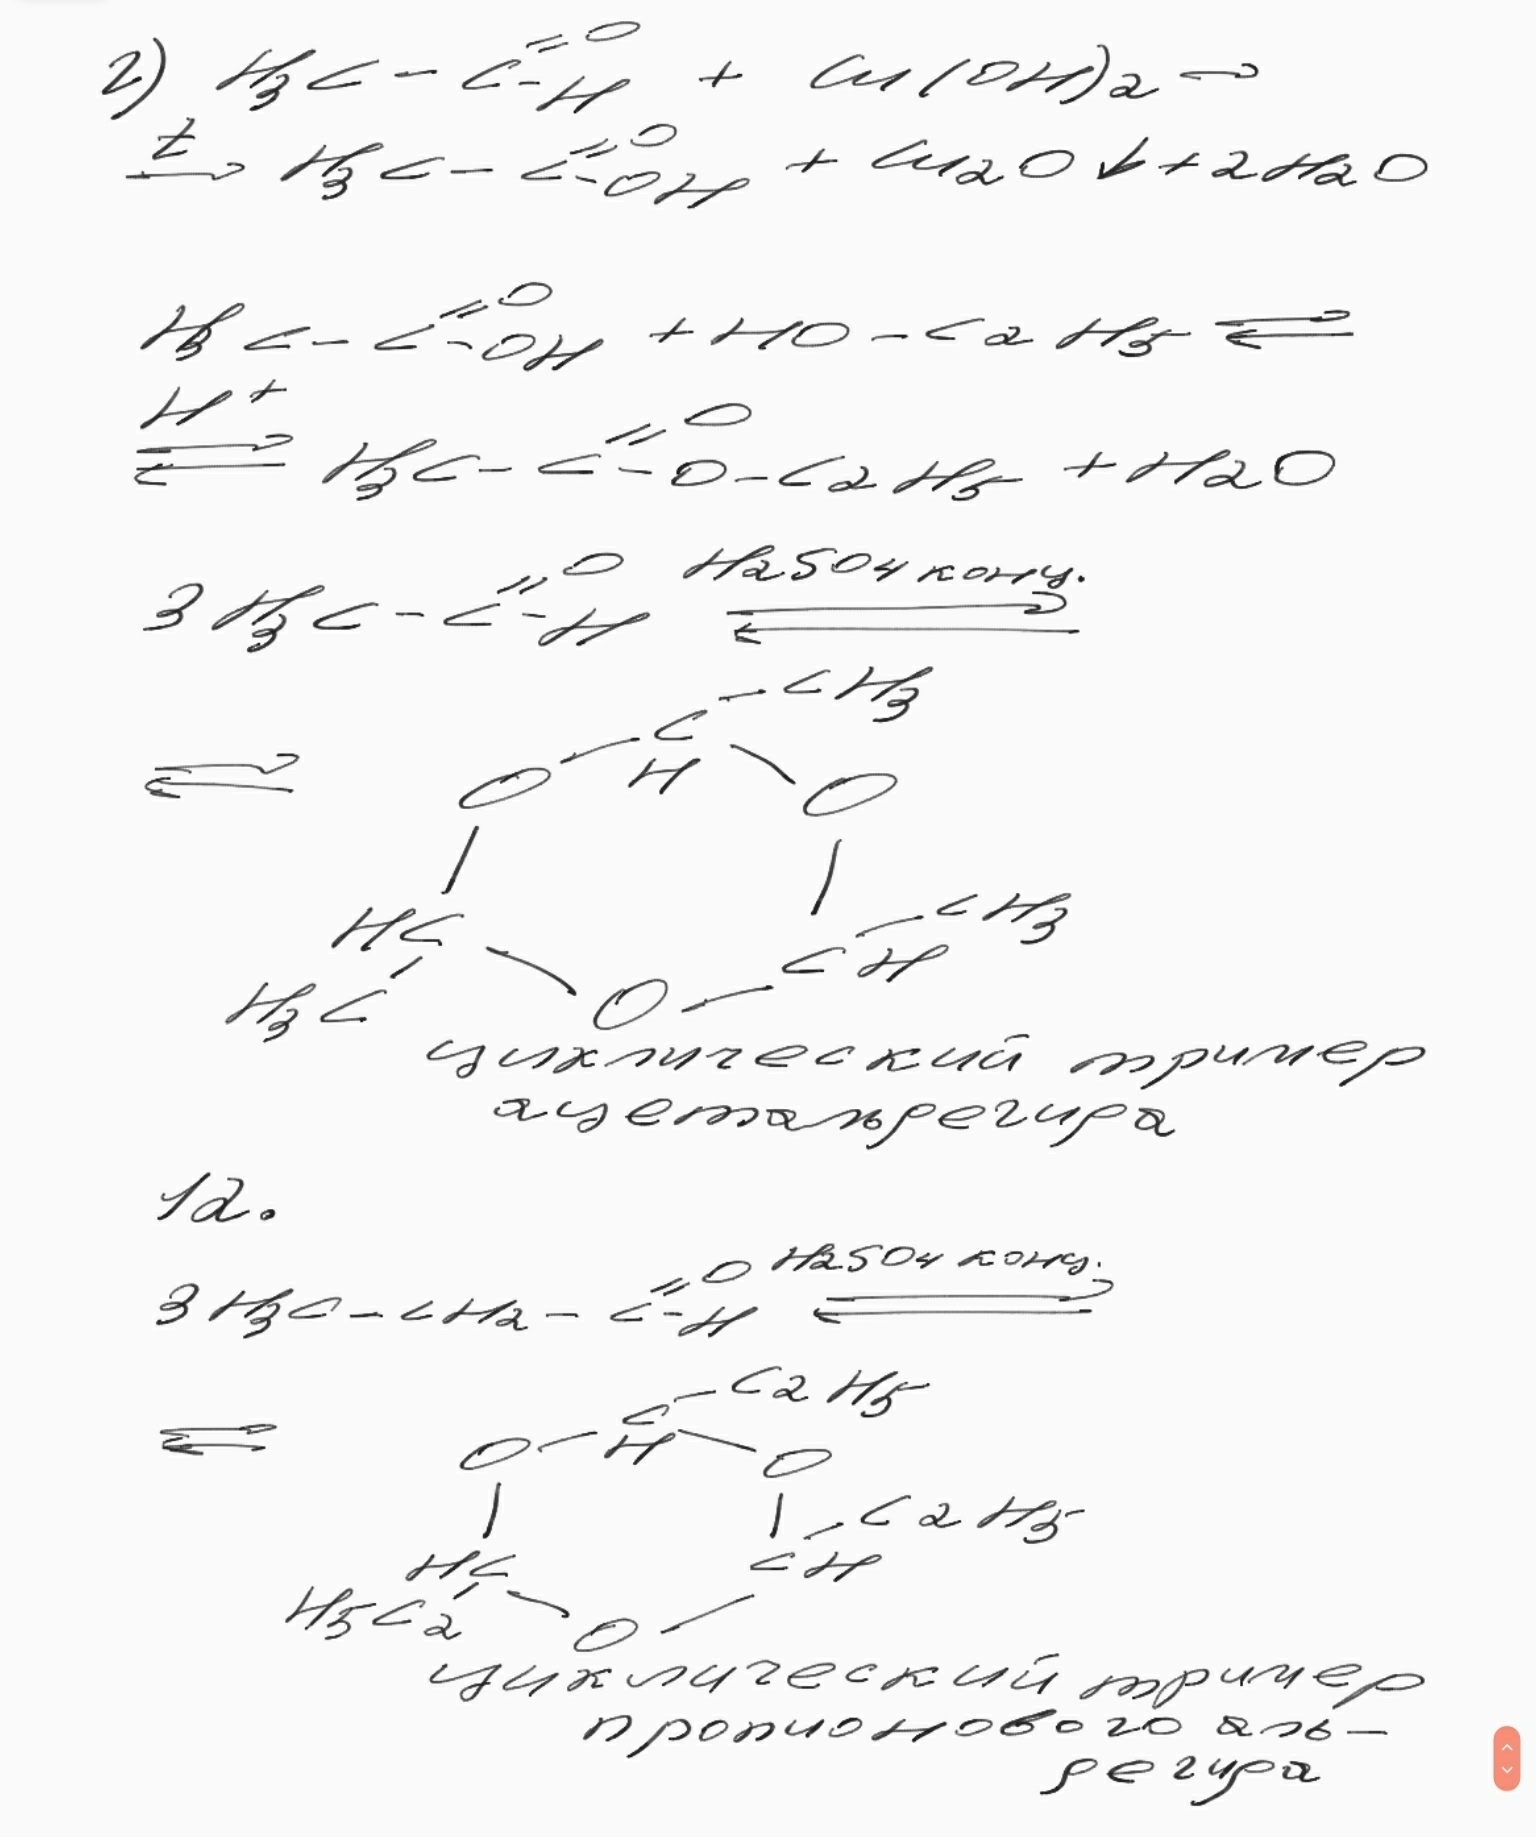 2) H3C - C =O -H + Cu(OH)2 →
t → H3C - C =O -OH + Cu2O ↓ + 2H2O
H3C - C =O -OH + HO - C2H5 ⇄
H+ ⇄ H3C - C =O -O - C2H5 + H2O
3 H3C - C =O -H H2SO4 конц. ⇄
CH3
⇄ O C H O
HC CH CH3
H3C O
циклический тример
ацетальдегида
12.
3 H3C - CH2 - C =O -H H2SO4 конц. ⇄
C2H5
⇄ O C H O
C2H5
HC CH
H5C2 O
циклический тример
пропионового аль-
дегида